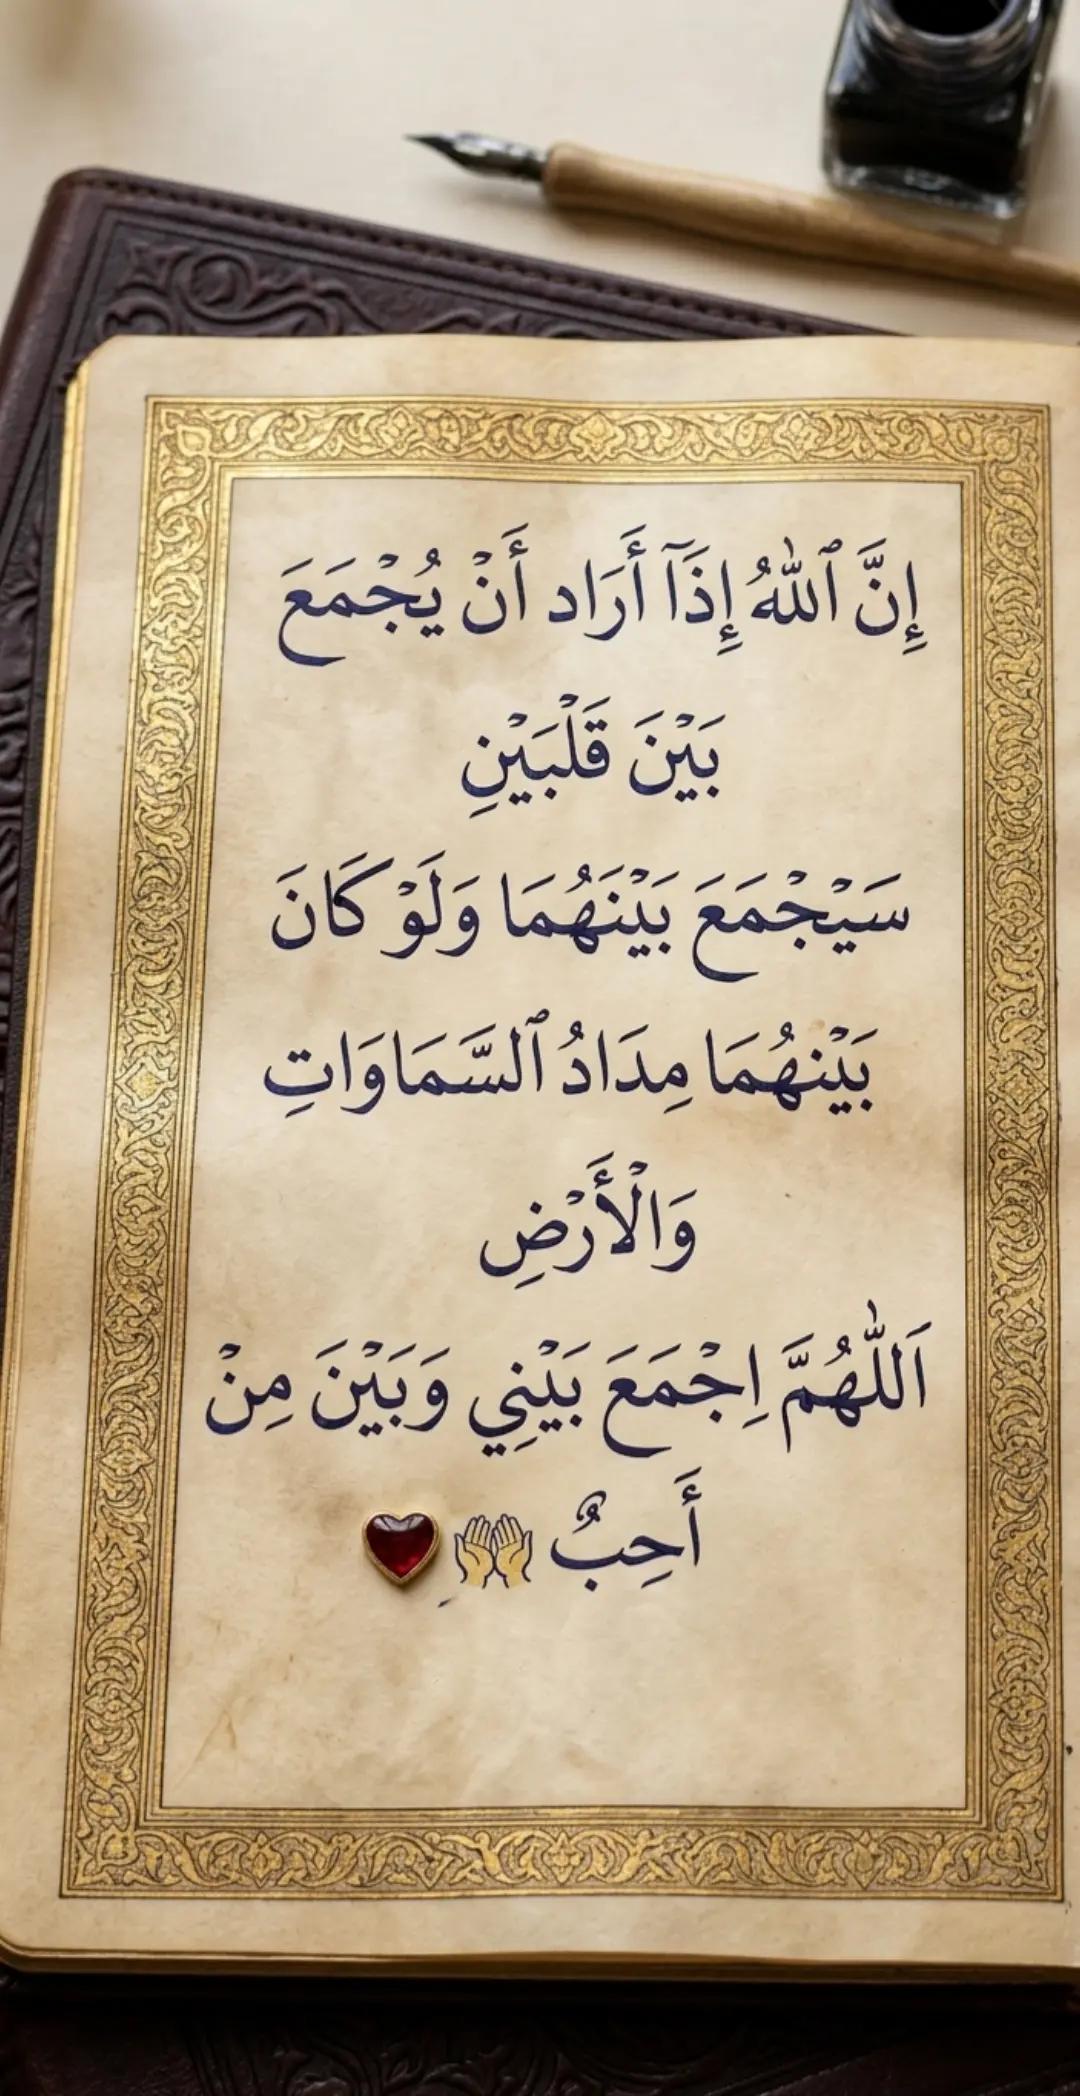 إِنَّ ٱللهُ إِذَآ أَرَاد أَنْ يُجْمَعَ
بَيْنَ قَلْبَيْنِ
سَيْجْمَعَ بَيْنَهُمَا وَلَوْ كَانَ
بَيْنهُمَا مِدَادُ ٱلسَّمَاوَاتِ
وَالْأَرْضِ
اَللّٰهُمَّ اِجْمَعَ بَيْنِي وَبَيْنَ مِنْ
أَحِبٌ 🤲 ❤️